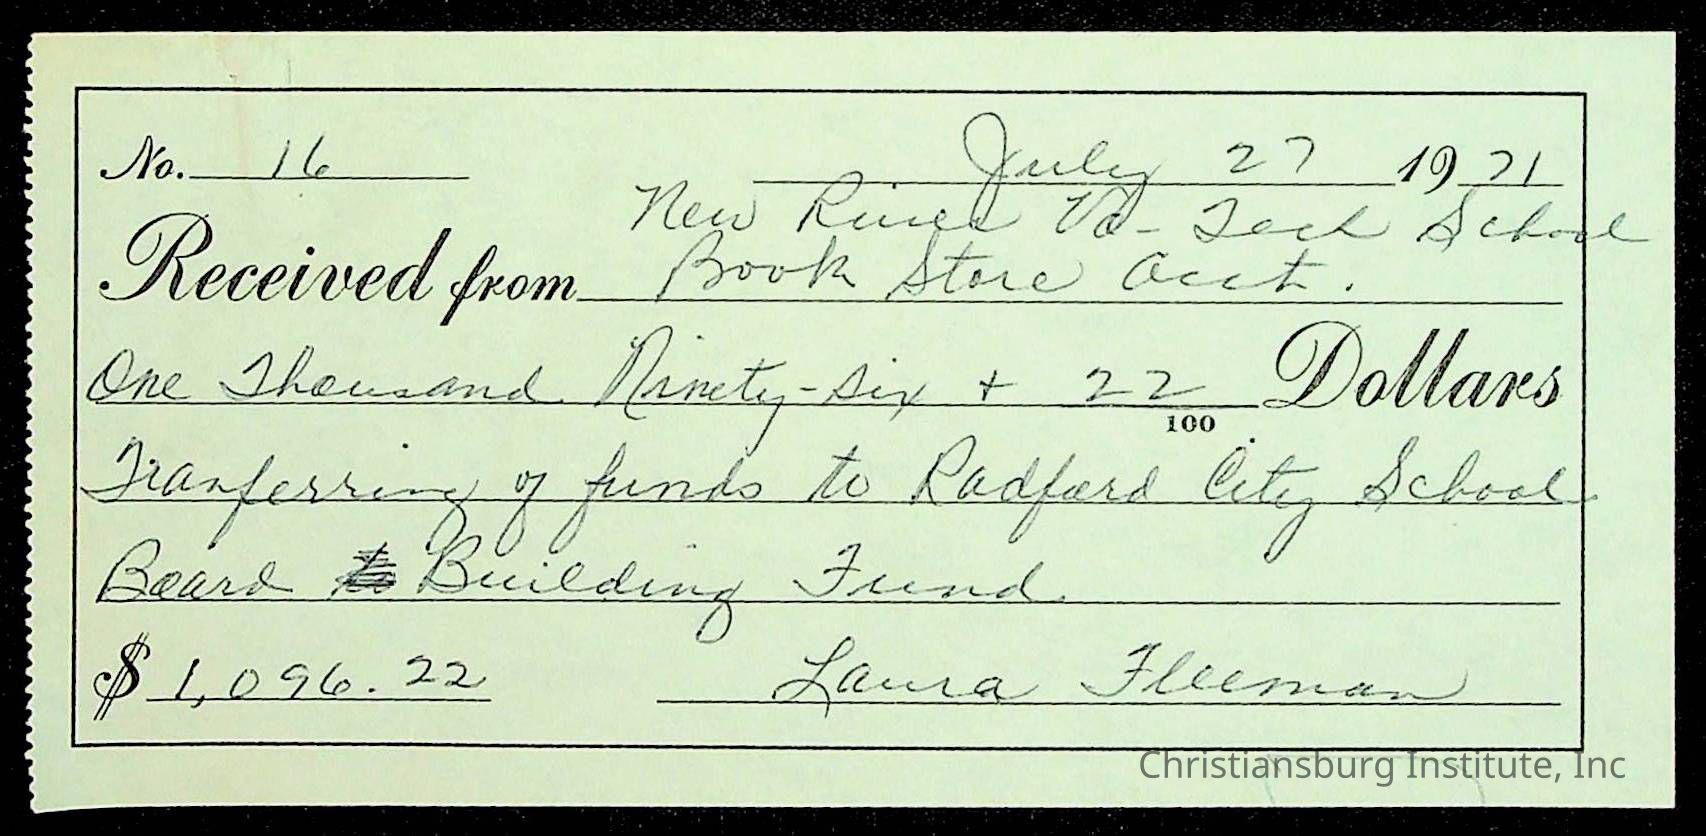 No. 16 July 27 1971
New River Va-Tech School
Received from Book Store Acct.
One Thousand Ninety-six + 22/100 Dollars
Tranferring of funds to Radford City School
Board Building Fund
$ 1,096.22 Laura Fleeman
Christiansburg Institute, Inc